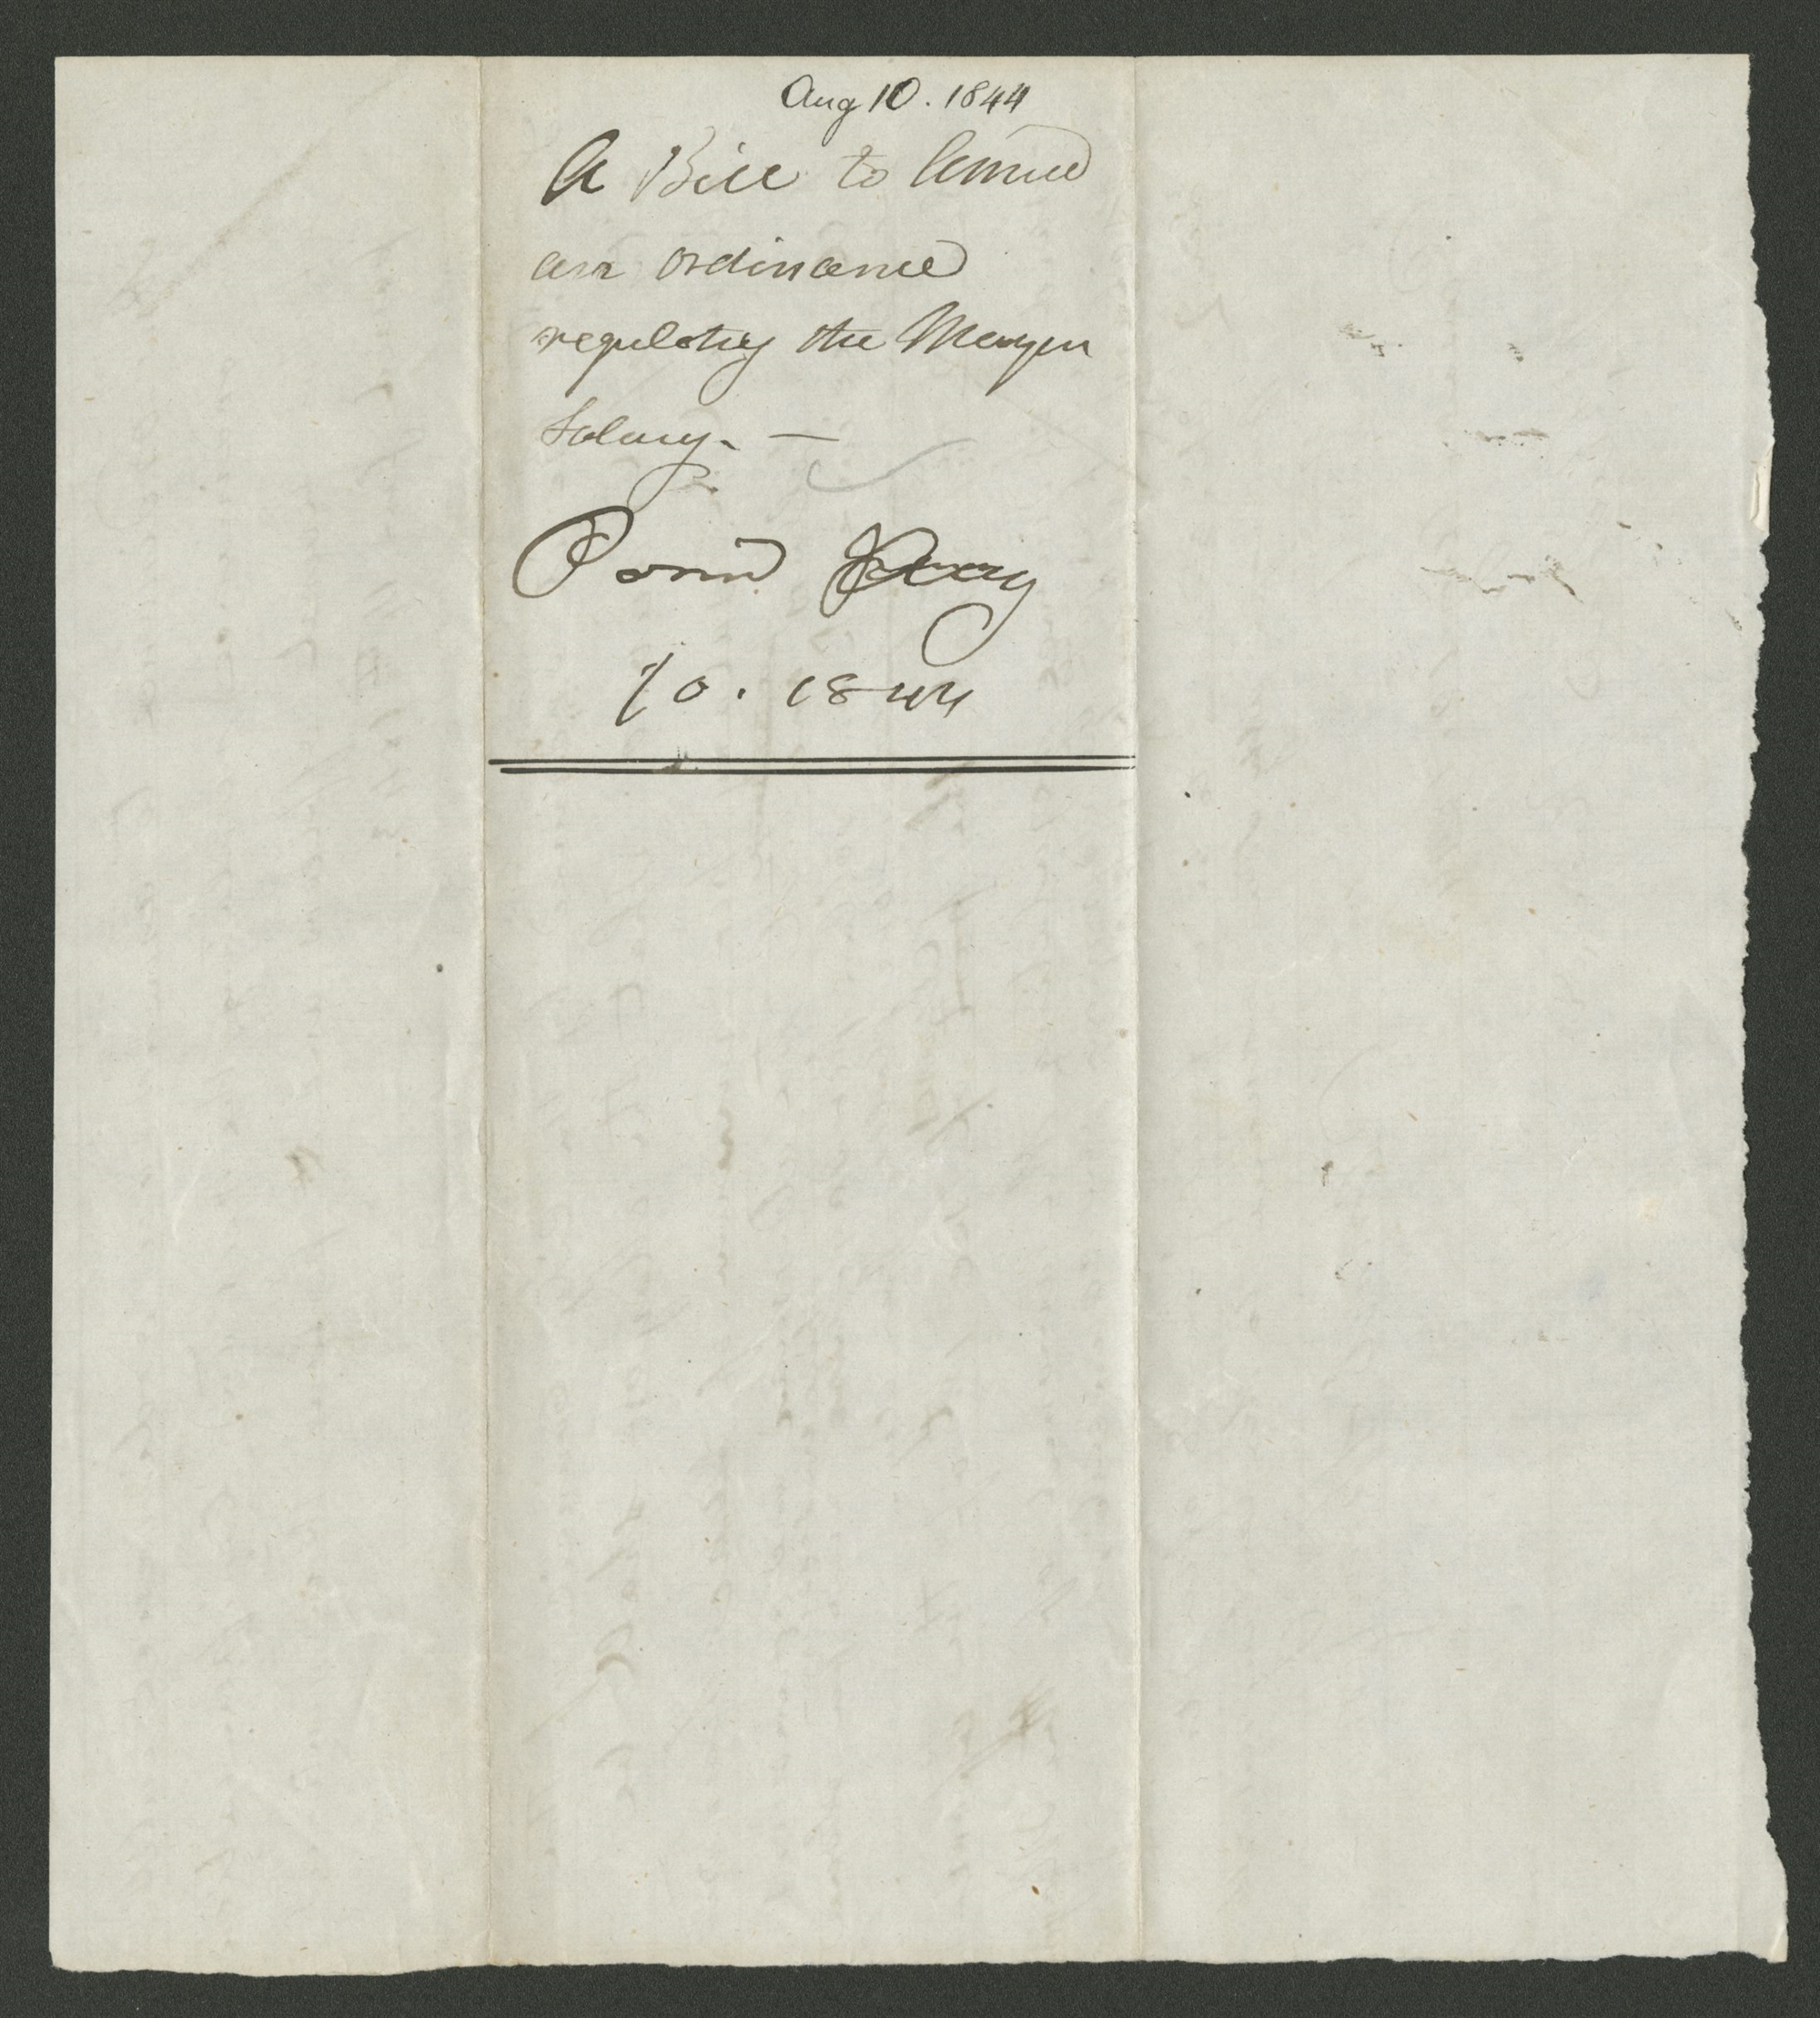 Aug 10. 1844
A Bill to Amend
an ordinance
regulating the Mayors
Salary. —
Pass'd Aug
10. 1844